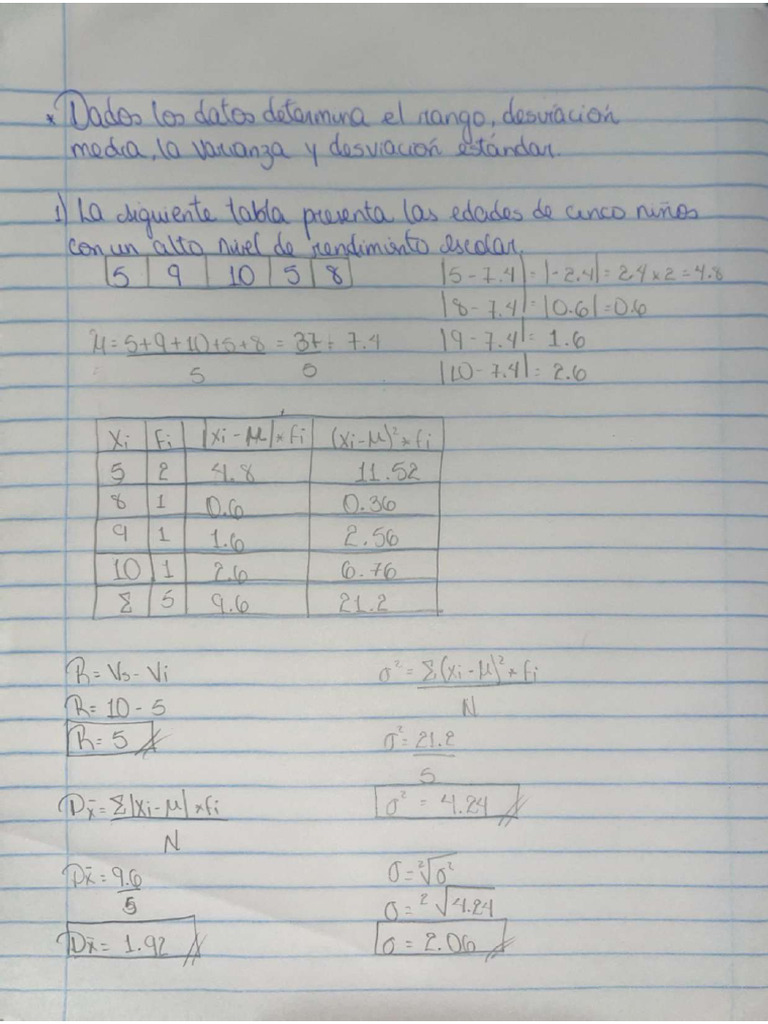 * Dados los datos determina el rango, desviación
media, la varianza y desviación estándar.
1) La siguiente tabla presenta las edades de cinco niños
con un alto nivel de rendimiento escolar.
5 9 10 5 8
|5-7.4|=|-2.4|=2.4x2=4.8
|8-7.4|=|0.6|=0.6
|9-7.4|=1.6
|10-7.4|=2.6
μ=5+9+10+5+8 = 37 = 7.4
5 5
Xi Fi |Xi-μ|*Fi (Xi-μ)²*Fi
5 2 4.8 11.52
8 1 0.6 0.36
9 1 1.6 2.56
10 1 2.6 6.76
Σ 5 9.6 21.2
R=Vs-Vi
R=10-5
R=5
Dx̄=Σ|Xi-μ|*fi
N
Dx̄=9.6
5
Dx̄=1.92
σ²=Σ(Xi-μ)²*Fi
N
σ²=21.2
5
σ²=4.24
σ=²√σ²
σ=²√4.24
σ=2.06